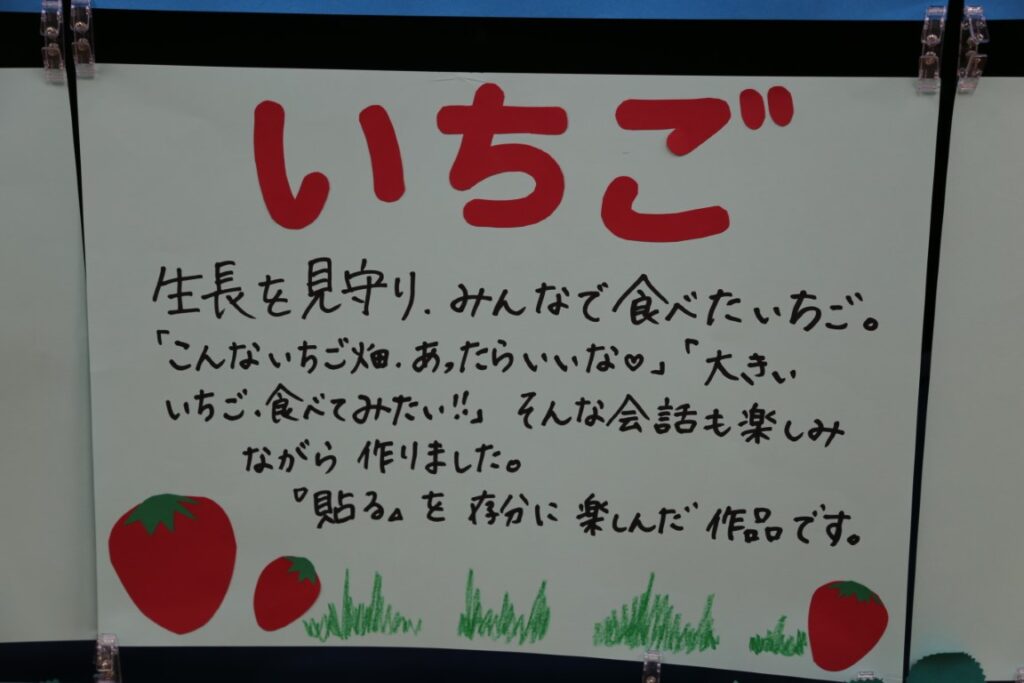 いちご
生長を見守り、みんなで食べたいちご。
「こんないちご畑、あったらいいな♡」「大きい
いちご、食べてみたい!!」そんな会話も楽しみ
ながら作りました。
『貼る』を存分に楽しんだ作品です。